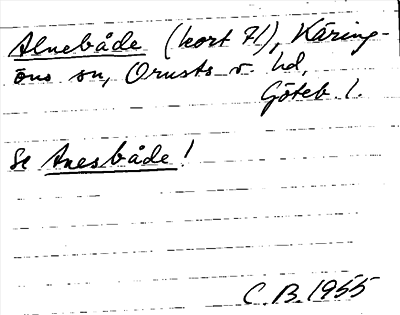 Alnebåde (kort 71), Käring-
öns sn, Orusts v. hd,
Göteb. l.
Se Anesbåde!
C.B. 1955